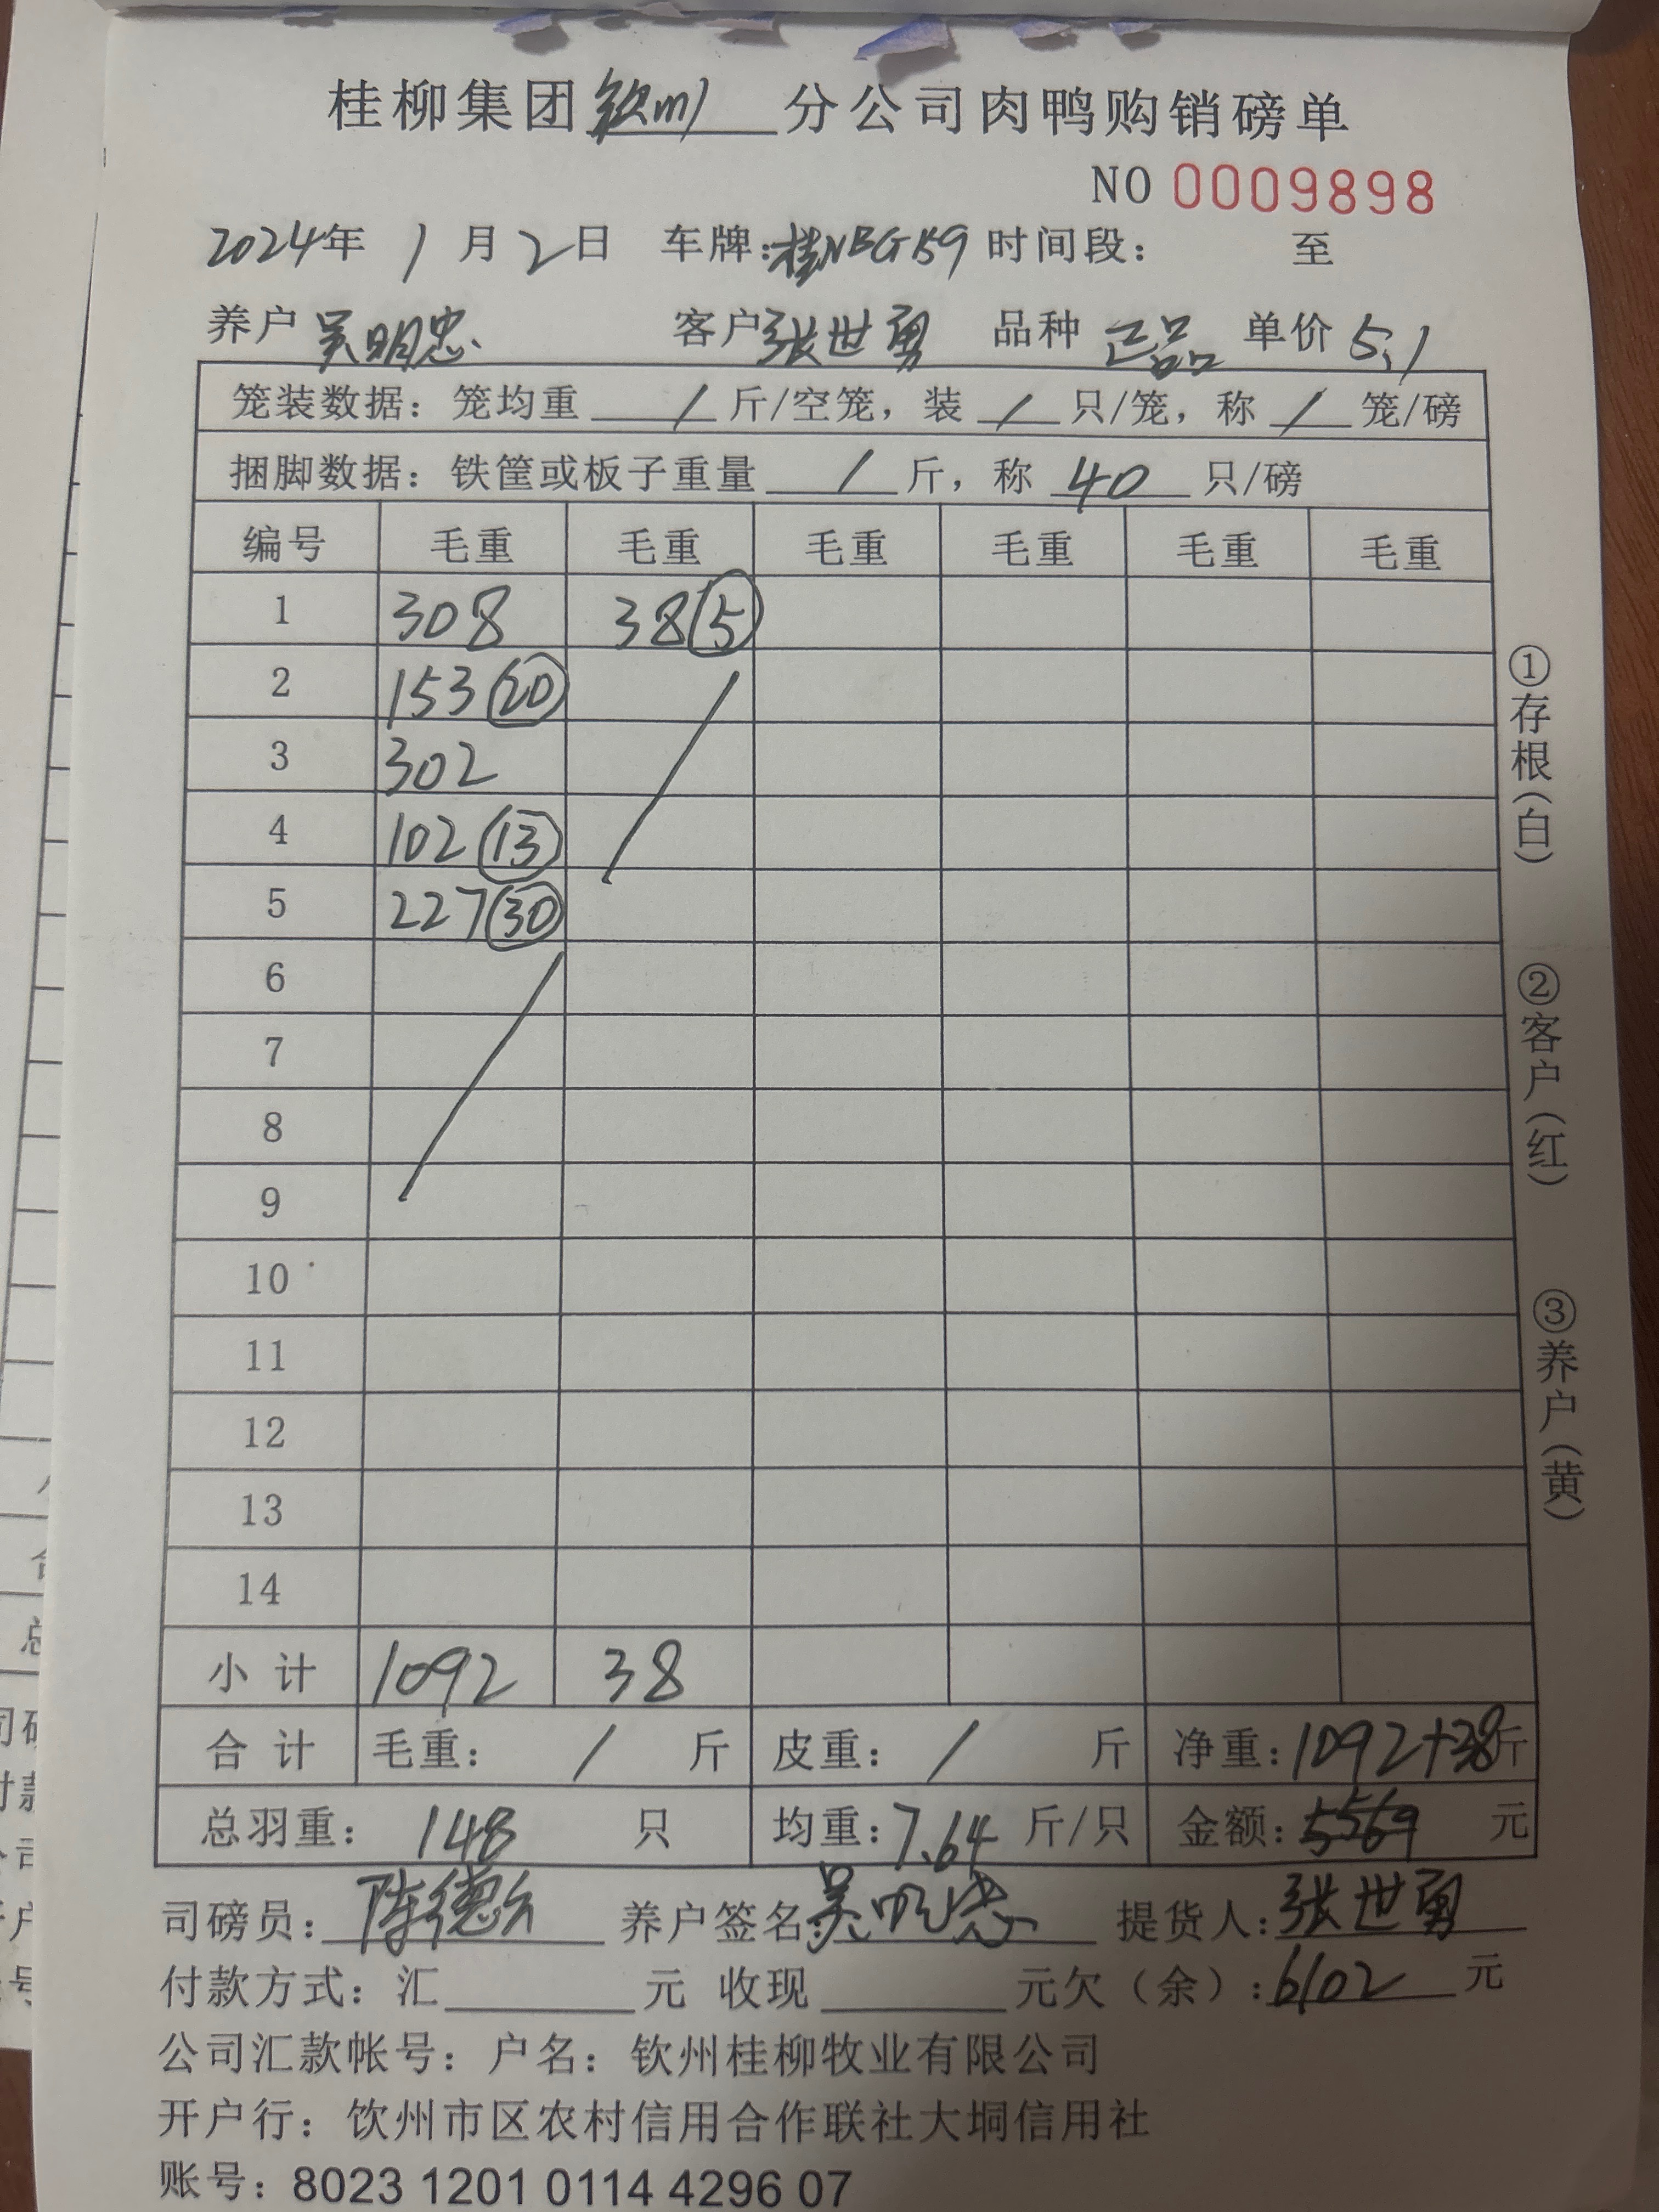 桂柳集团钦州分公司肉鸭购销磅单
NO 0009898
2024年 1月2日 车牌:桂NBG159 时间段: 至
养户 吴明忠 客户 张世勇 品种 正品 单价 5.1
笼装数据:笼均重 / 斤/空笼,装 / 只/笼,称 / 笼/磅
捆脚数据:铁筐或板子重量 / 斤,称 40 只/磅
编号 毛重 毛重 毛重 毛重 毛重 毛重
1 308 38(5)
2 153(20)
3 302
4 102(13)
5 227(30)
6
7
8
9
10
11
12
13
14
小计 1092 38
合计 毛重: / 斤 皮重: / 斤 净重:1092+38斤
总羽重: 148 只 均重:7.64 斤/只 金额:5569 元
司磅员:陈德 养户签名:吴明忠 提货人:张世勇
付款方式:汇 元 收现 元欠(余):6102 元
公司汇款帐号:户名:钦州桂柳牧业有限公司
开户行:饮州市区农村信用合作联社大垌信用社
账号:8023 1201 0114 4296 07
①存根(白)
②客户(红)
③养户(黄)